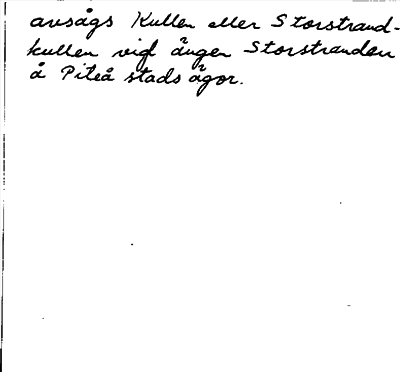 avsågs Kullen eller Storstrand-
kullen vid ängen Storstranden
å Piteå stads ägor.